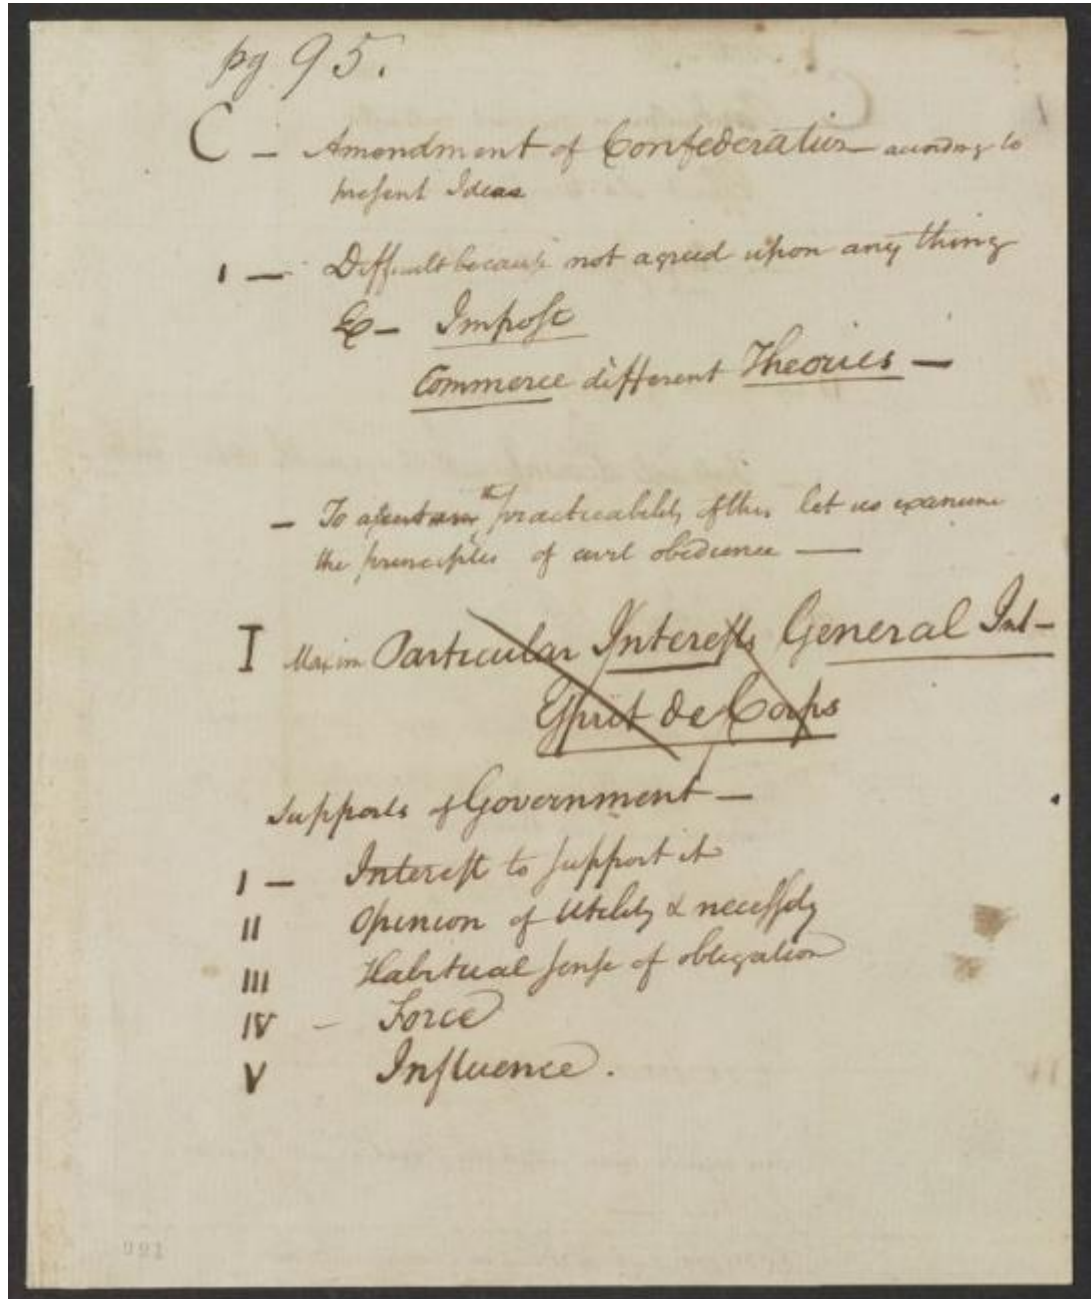 pg 95.
C – Amendment of Confederation according to
present Ideas
1 — Difficult because not agreed upon any thing
Ex – Impost
Commerce different Theories —
– To ascertain the practicability of this let us examine
the principles of civil obedience —
I Maxim Particular Interests General Int –
Esprit de Corps
Supports of Government –
I – Interest to support it
II Opinion of Utility & necessity
III Habitual sense of obligation
IV – Force
V Influence.